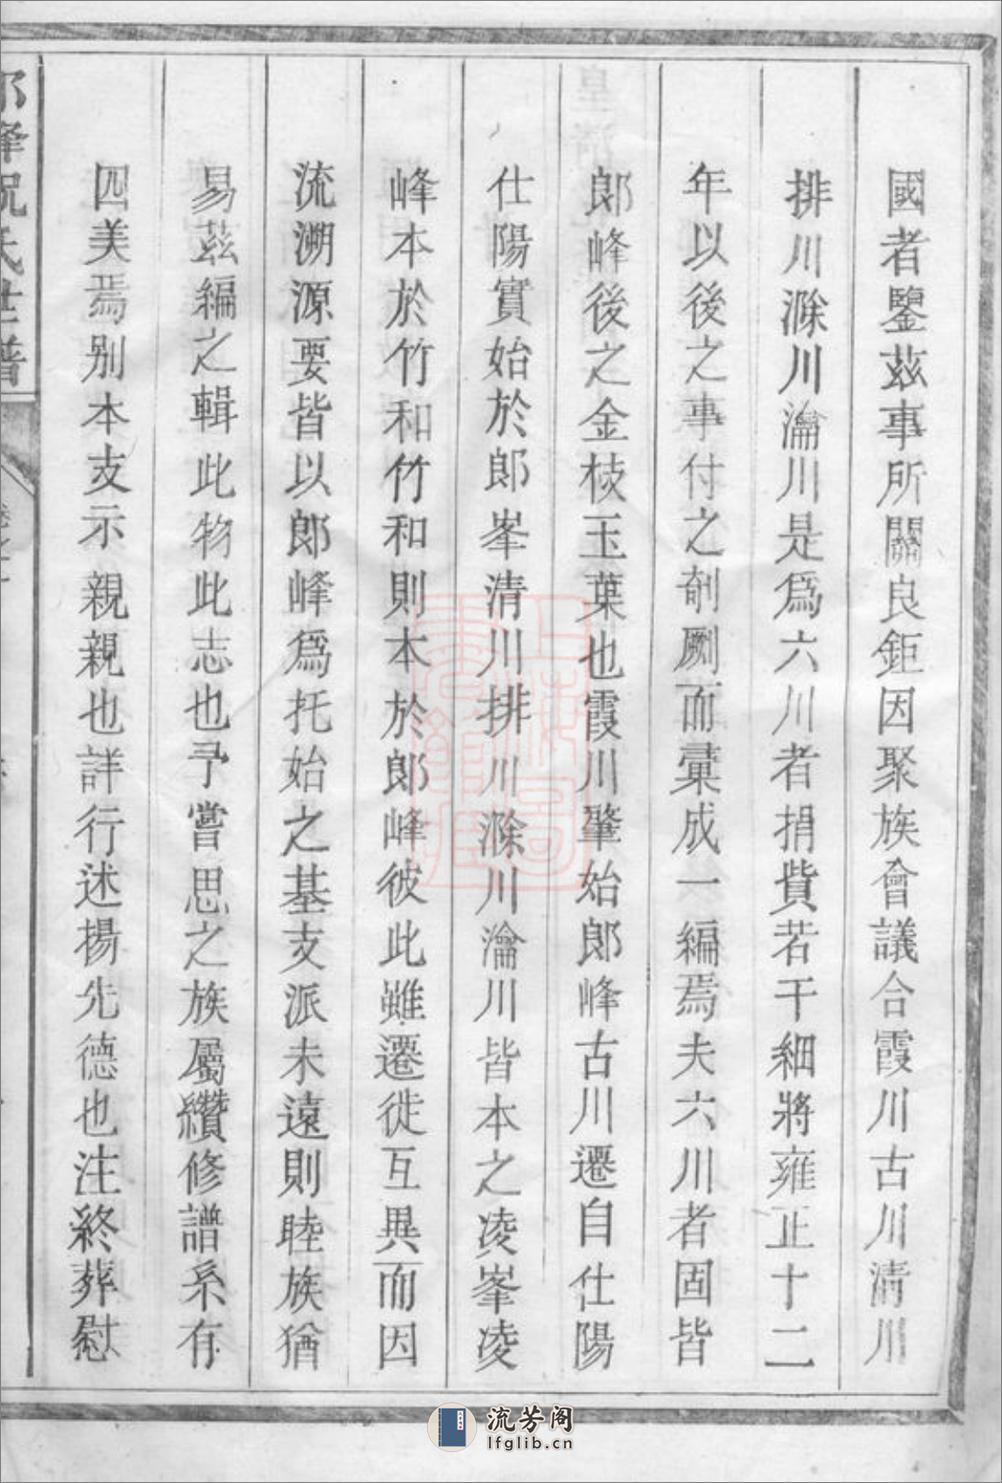 國者鑒茲事所關良鉅因聚族會議合霞川古川清川
排川滁川瀹川是爲六川者捐貲若干細將雍正十二
年以後之事付之剞劂而彙成一編焉夫六川者固皆
郎峰後之金枝玉葉也霞川肇始郎峰古川遷自仕陽
仕陽實始於郎峯清川排川滁川瀹川皆本之凌峯凌
峰本於竹和竹和則本於郎峰彼此雖遷徙互異而因
流溯源要皆以郎峰爲托始之基支派未遠則睦族猶
易茲編之輯此物此志也予嘗思之族屬纘修譜系有
四美焉别本支示親親也詳行述揚先德也注終葬慰
郎峰祝氏世譜
流芳阁
lfglib.cn